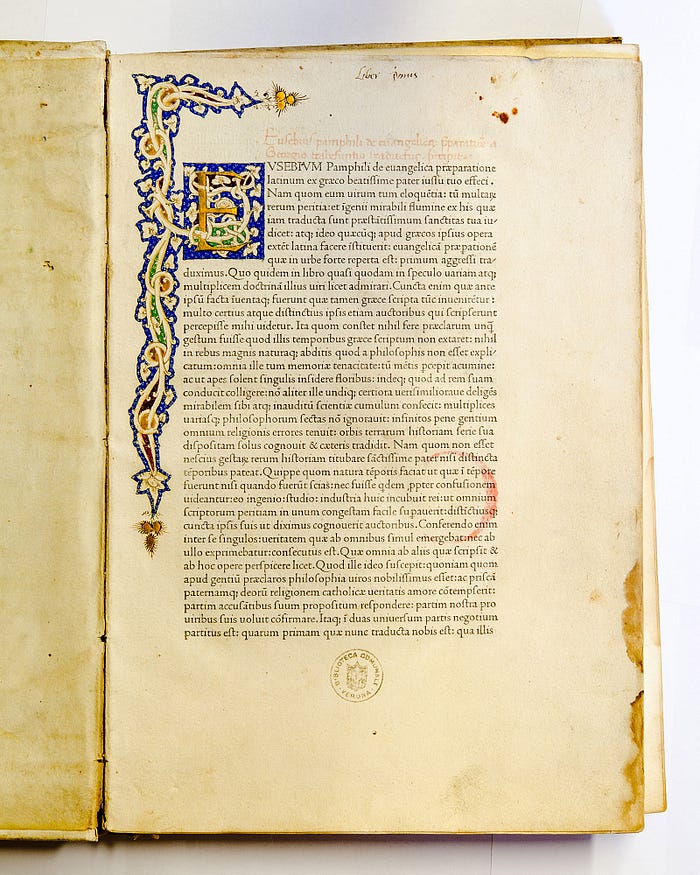 Liber primus
Eusebius pamphili de euangelica
Georgio
EVSEBIVM Pamphili de euangelica præparatione
latinum ex græco beatissime pater iussu tuo effeci.
Nam quom eum uirum tum eloquētia: tū multaꝝ
rerum peritia: et īgenii mirabili flumine ex his quæ
iam traducta sunt præstātissimum sanctitas tua iu-
dicet: atq; ideo quæcūq; apud græcos ipsius opera
extēt latina facere īstituerit: euangelicā præpationē
quæ in urbe forte reperta est: primum aggressi tra-
duximus. Quo quidem in libro quasi quodam in speculo uariam atq;
multiplicem doctrinā illius uiri licet admirari. Cuncta enim quæ ante
ipsū facta īuentaq; fuerunt quæ tamen græce scripta tūc inueniretur:
multo certius atque distinctius ipsis etiam auctoribus qui scripserunt
percepisse mihi uidetur. Ita quom constet nihil fere præclarum unq̄
gestum fuisse quod illis temporibus græce scriptum non extaret: nihil
in rebus magnis naturaq; abditis quod a philosophis non esset expli-
catum: omnia ille tum memoriæ tenacitate: tū mētis pcepit acumine:
ac ut apes solent singulis insidere floribus: indeq; quod ad rem suam
conducit colligere: nō aliter ille undiq; certiora uerisimilioraue deligēs
mirabilem sibi atq; inauditū scientiæ cumulum confecit: multiplices
uariasq; philosophorum sectas nō ignorauit: infinitos pene gentium
omnium religionis errores tenuit: orbis terrarum historiam serie sua
dispositam solus cognouit & cæteris tradidit. Nam quom non esset
nescius gestaꝝ rerum historiam titubare sāctissime pater nisi distincta
tēporibus pateat. Quippe quom natura tēporis faciat ut quæ ī tēpore
fuerunt nisi quando fuerūt scias: nec fuisse qdem ꝓpter confusionem
uideantur: eo ingenio: studio: industria huic incubuit rei: ut omnium
scriptorum peritiam in unum congestam facile supauerit: distīctiusq;
cuncta ipsis suis ut diximus cognouerit auctoribus. Conferendo enim
inter se singulos: ueritatem quæ ab omnibus simul emergebat: nec ab
ullo exprimebatur: consecutus est. Quæ omnia ab aliis quæ scripsit &
ab hoc opere perspicere licet. Quod ille ideo suscepit: quoniam quom
apud gentiū præclaros philosophia uiros nobilissimus esset: ac priscā
paternamq; deorū religionem catholicæ ueritatis amore cōtempserit:
partim accusātibus suum propositum respondere: partim nostra pro
uiribus suis uoluit cōfirmare. Itaq; ī duas uniuersum partis negotium
partitus est: quarum primam quæ nunc traducta nobis est: qua illis
BIBLIOTECA COMUNALE
VERONA